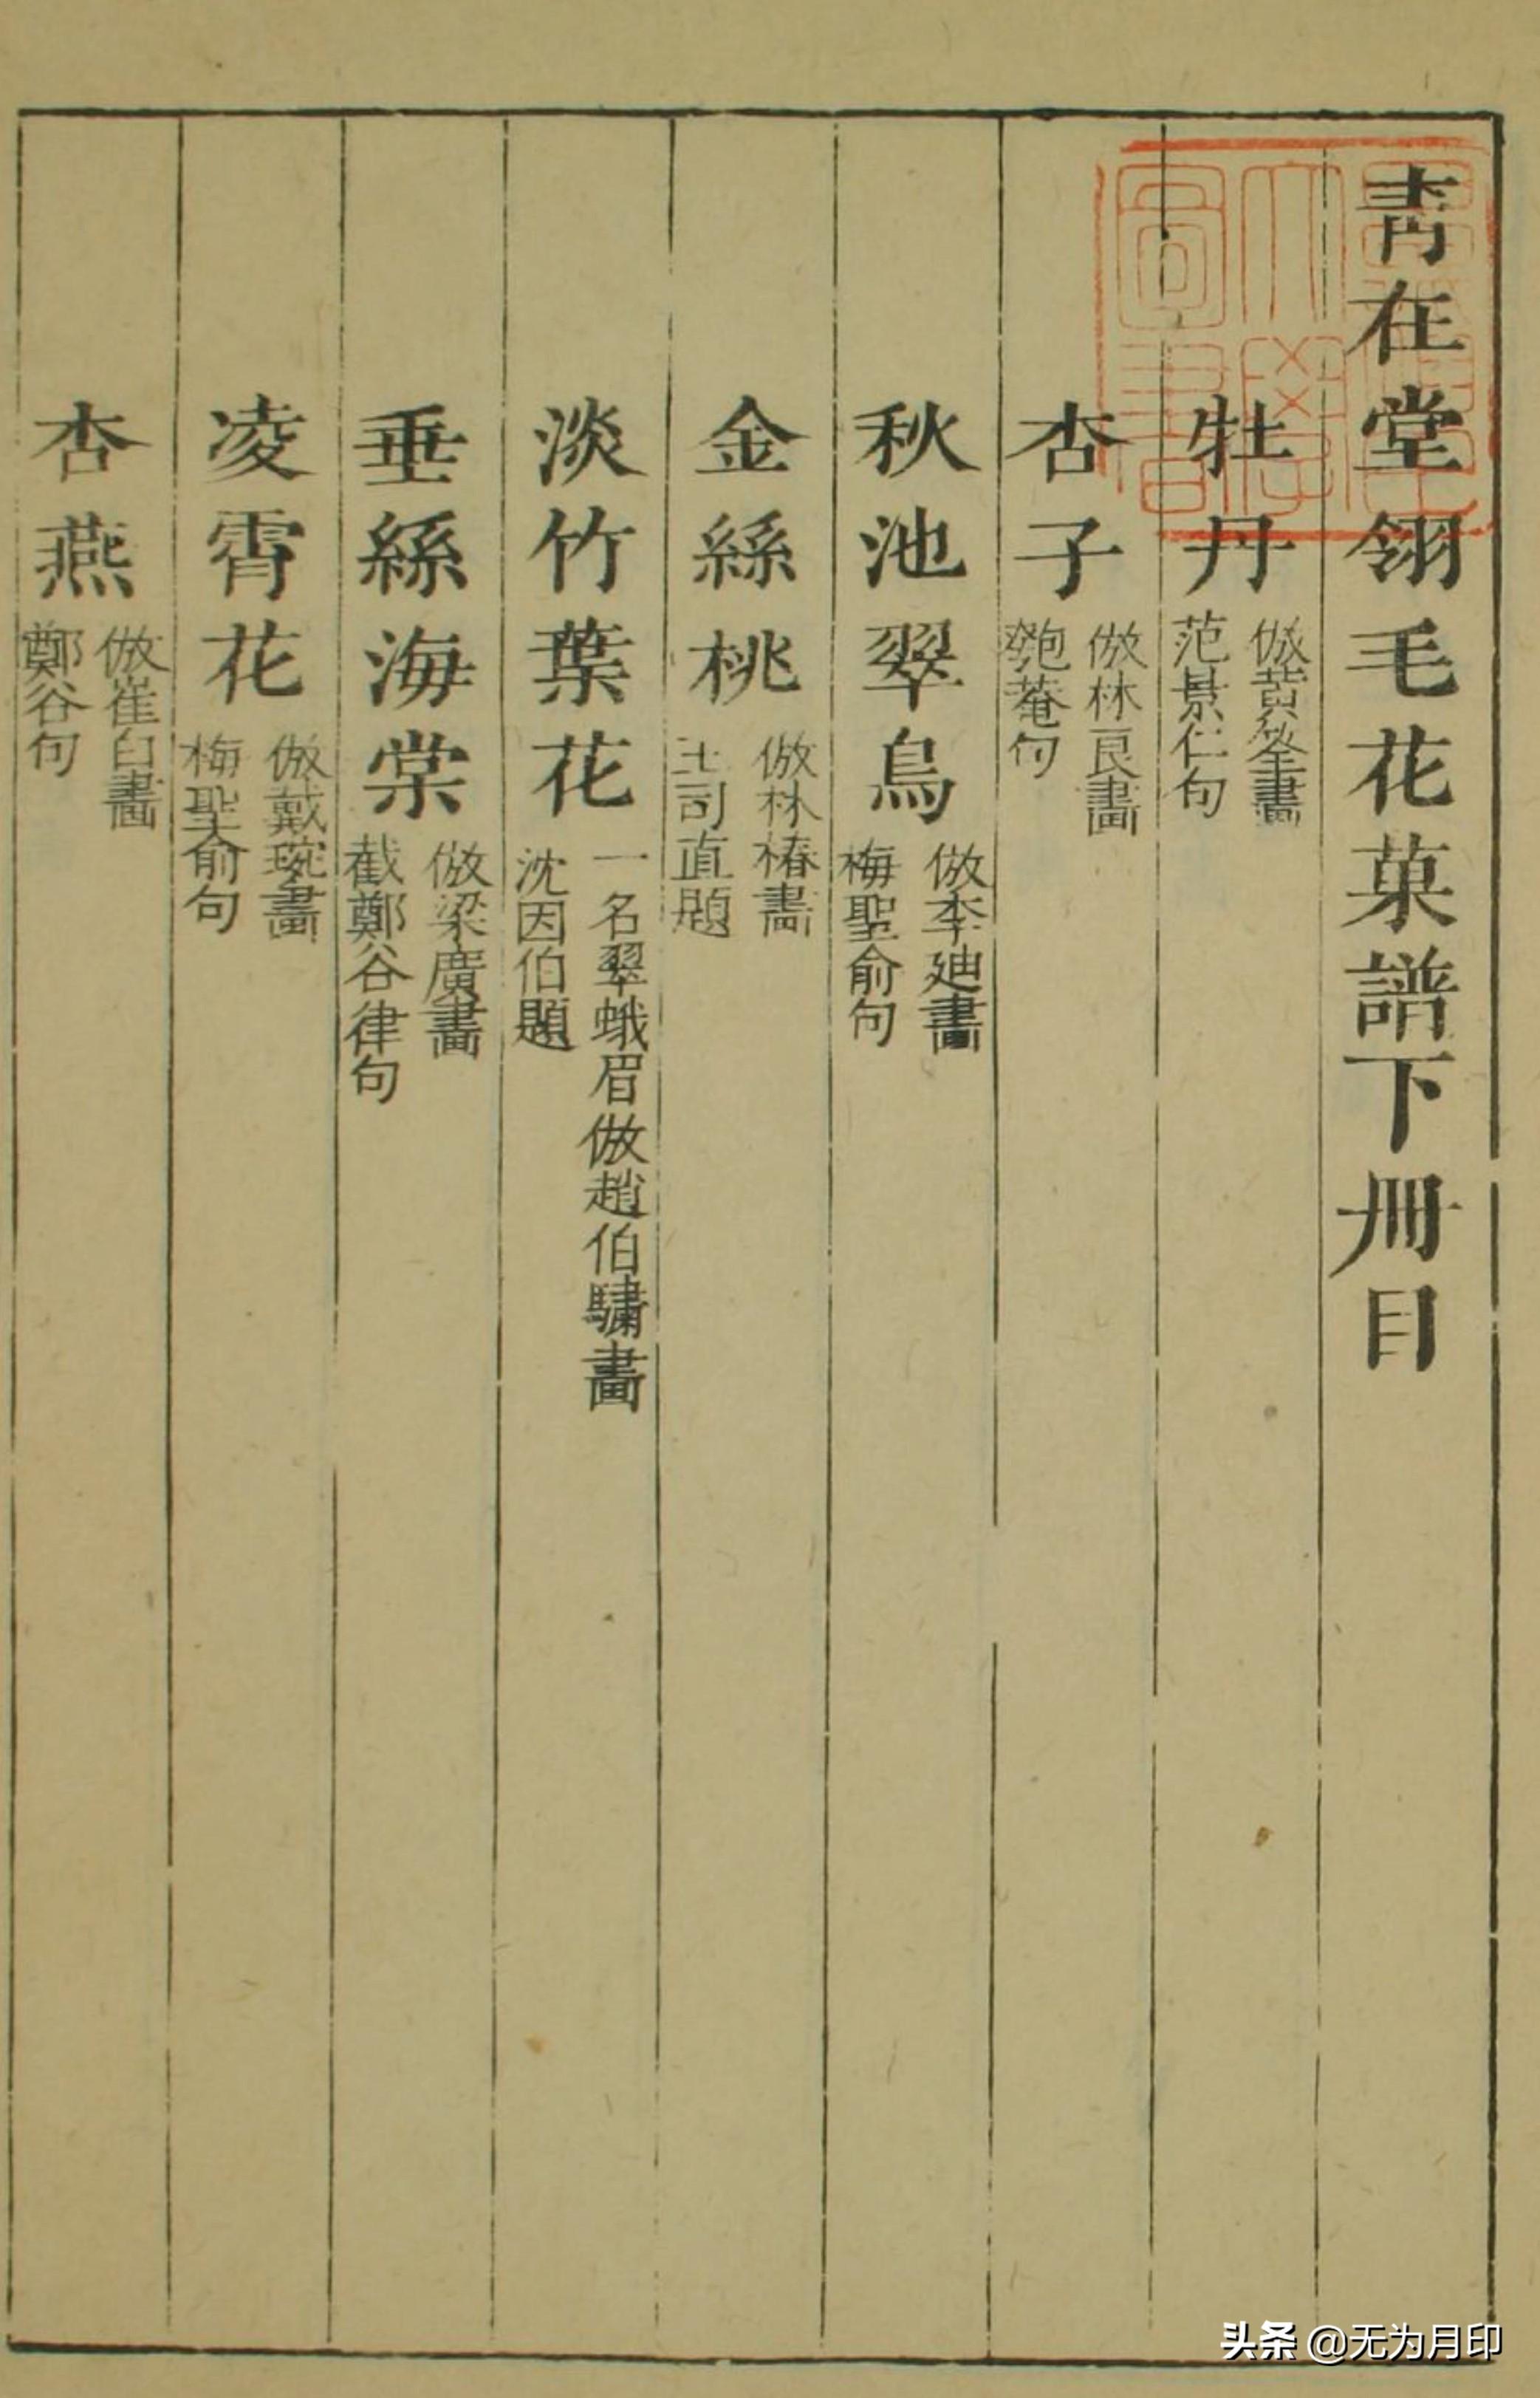 靑在堂翎毛花菓譜下冊目
牡丹
倣黃筌畫
范景仁句
杏子
倣林良畫
匏菴句
秋池翠鳥
倣李廸畫
梅聖俞句
金絲桃
倣林椿畵
王司直題
淡竹葉花
一名翠蛾眉倣趙伯驌畫
沈因伯題
垂絲海棠
倣梁廣畫
截鄭谷律句
凌霄花
倣戴琬畵
梅聖俞句
杏燕
倣崔白畵
鄭谷句
头条 @无为月印